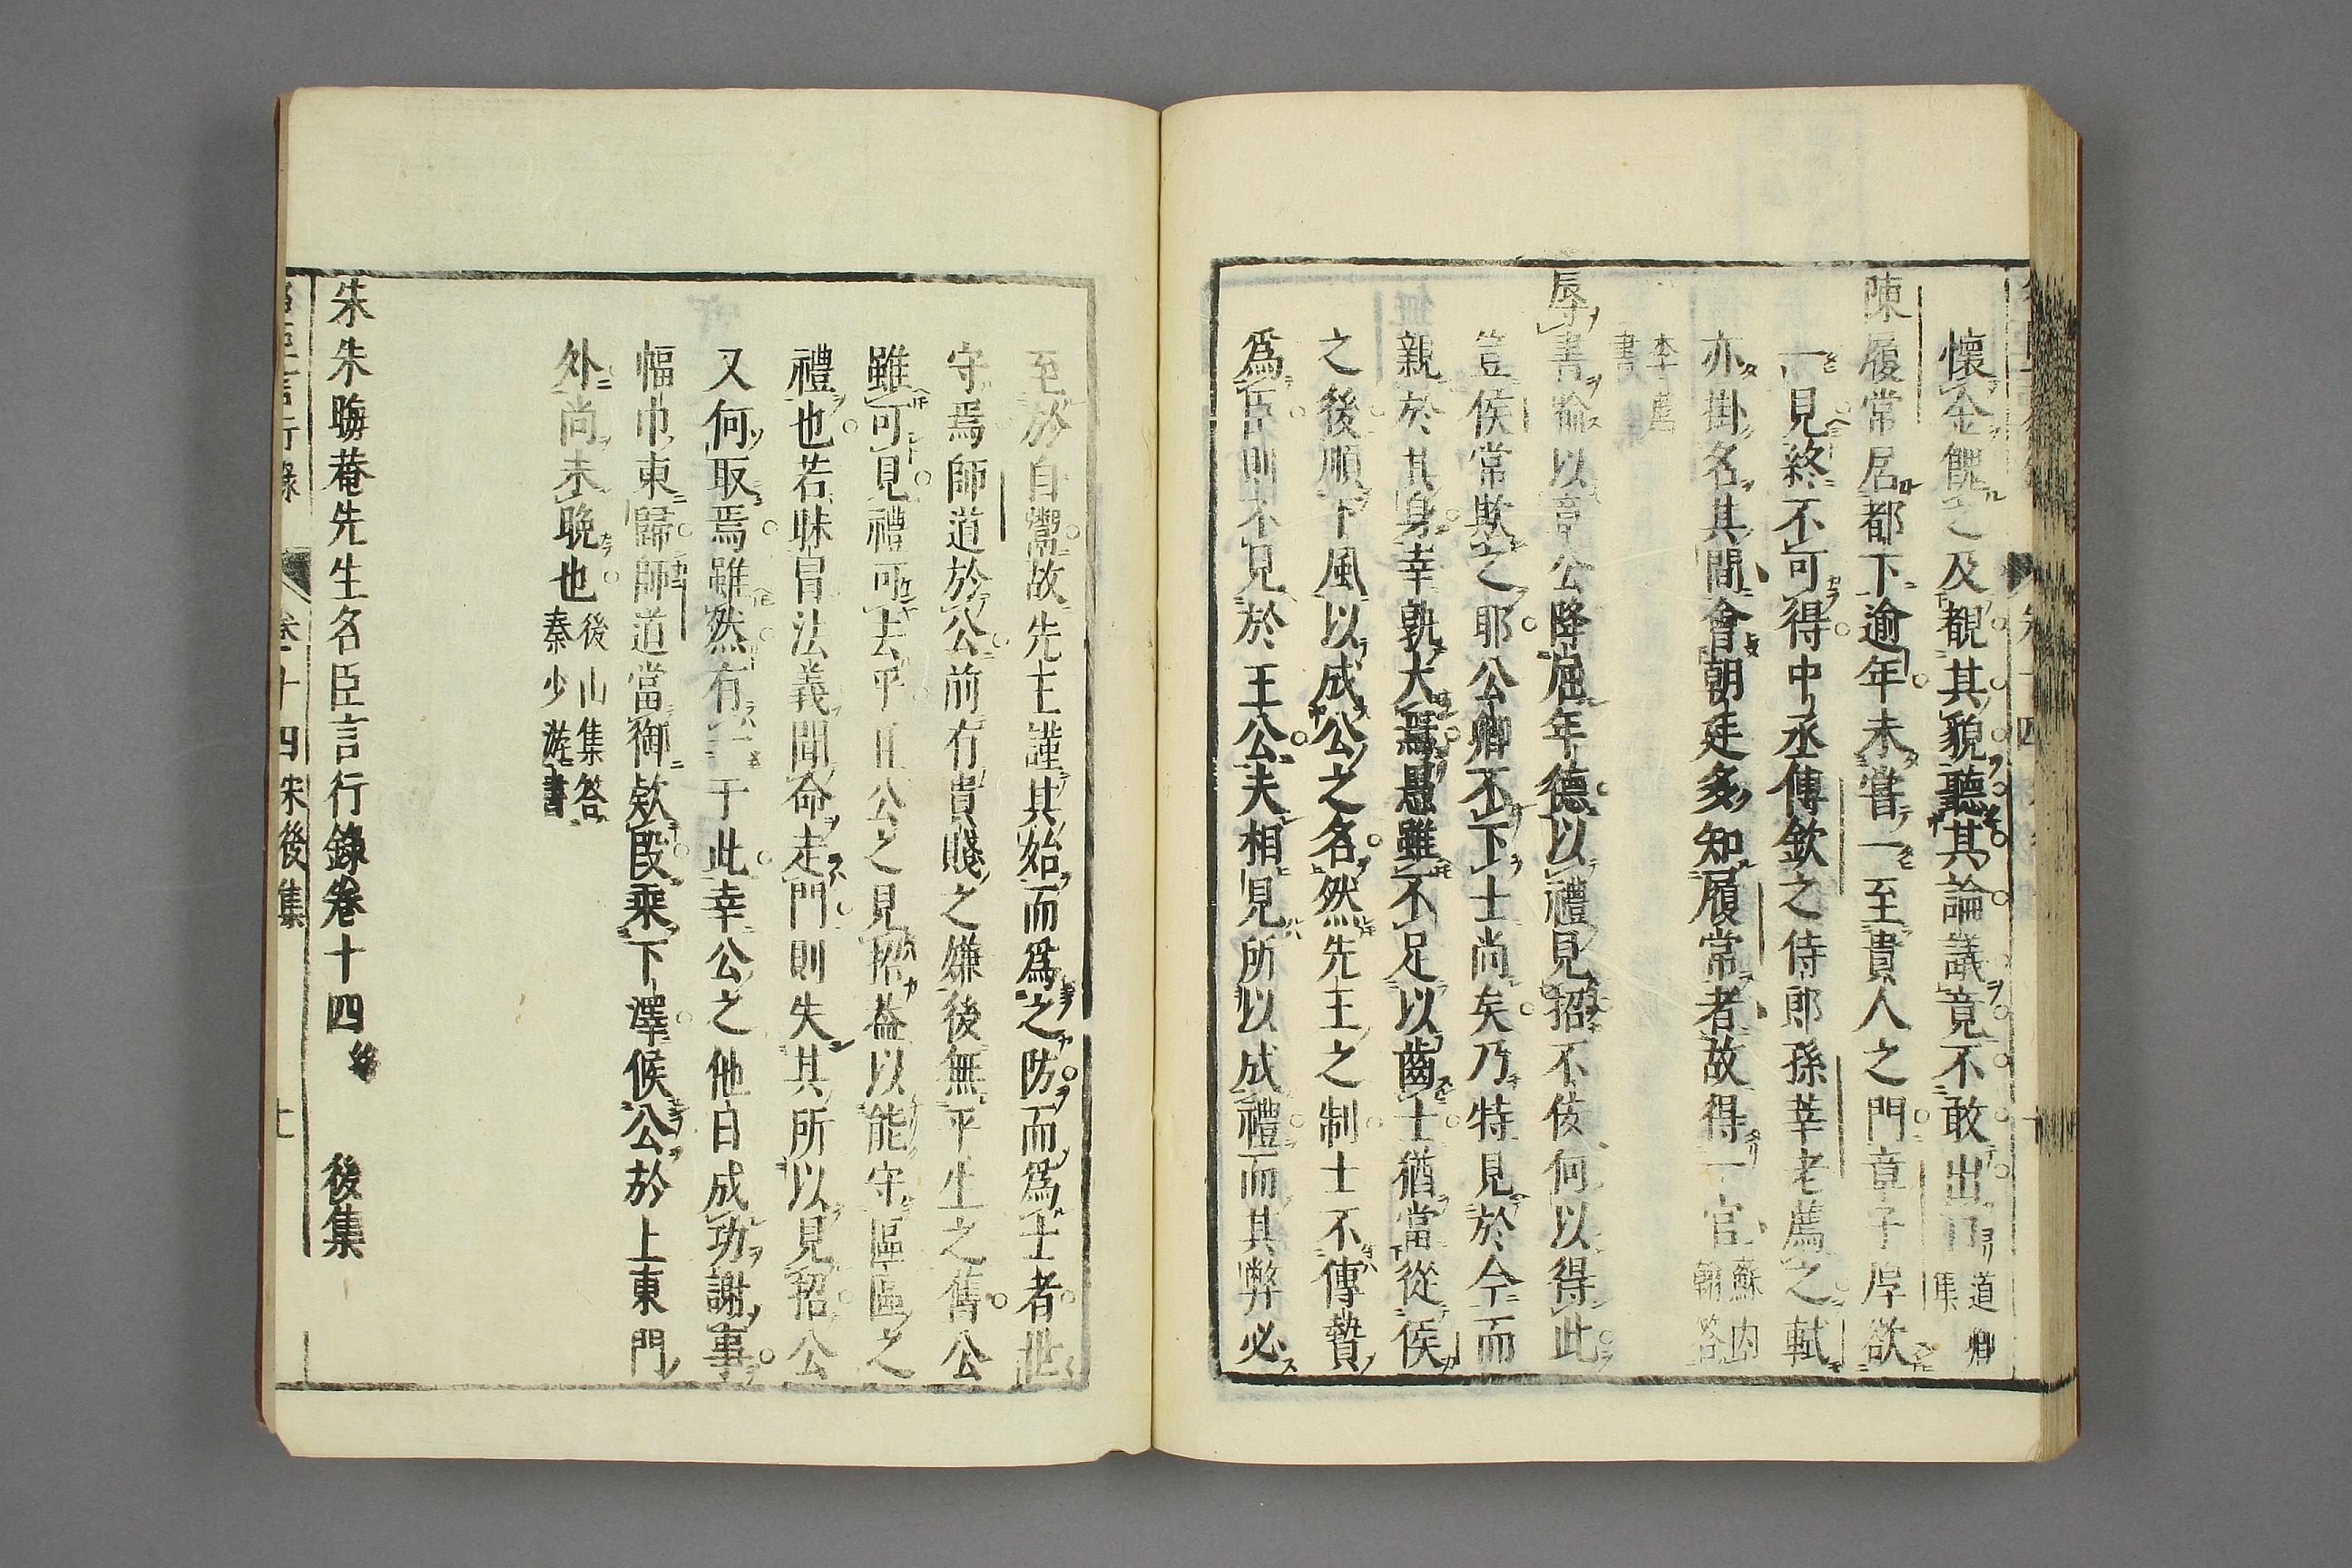 懷金餽之及觀其貌聽其論議竟不敢出口道卿集
陳履常居都下逾年未嘗一至貴人之門章子厚欲
一見終不可得中丞傅欽之侍郎孫莘老薦之軾
亦掛名其間會朝廷多知履常者故得一官蘇内翰答
李廌書
辱書喻以章公降屈年德以禮見招不佞何以得此
豈侯常欺之耶公卿不下士尚矣乃特見於今而
親於其身幸孰大焉愚雖不足以齒士猶當從侯
之後順下風以成公之名然先王之制士不傳贄
爲臣則不見於王公夫相見所以成禮而其弊必
至於自鬻故先王謹其始而爲之防而爲士者世
守焉師道於公前有貴賤之嫌後無平生之舊公
雖可見禮可去乎且公之見招蓋以能守區區之
禮也若昧冒法義聞命走門則失其所以見招公
又何取焉雖然有一于此幸公之他日成功謝事
幅巾東歸師道當御欵段乘下澤候公於上東門
外尚未晚也後山集答秦少游書
宋朱晦菴先生名臣言行錄卷十四終 後集
名臣言行錄 卷十四宋後集 十